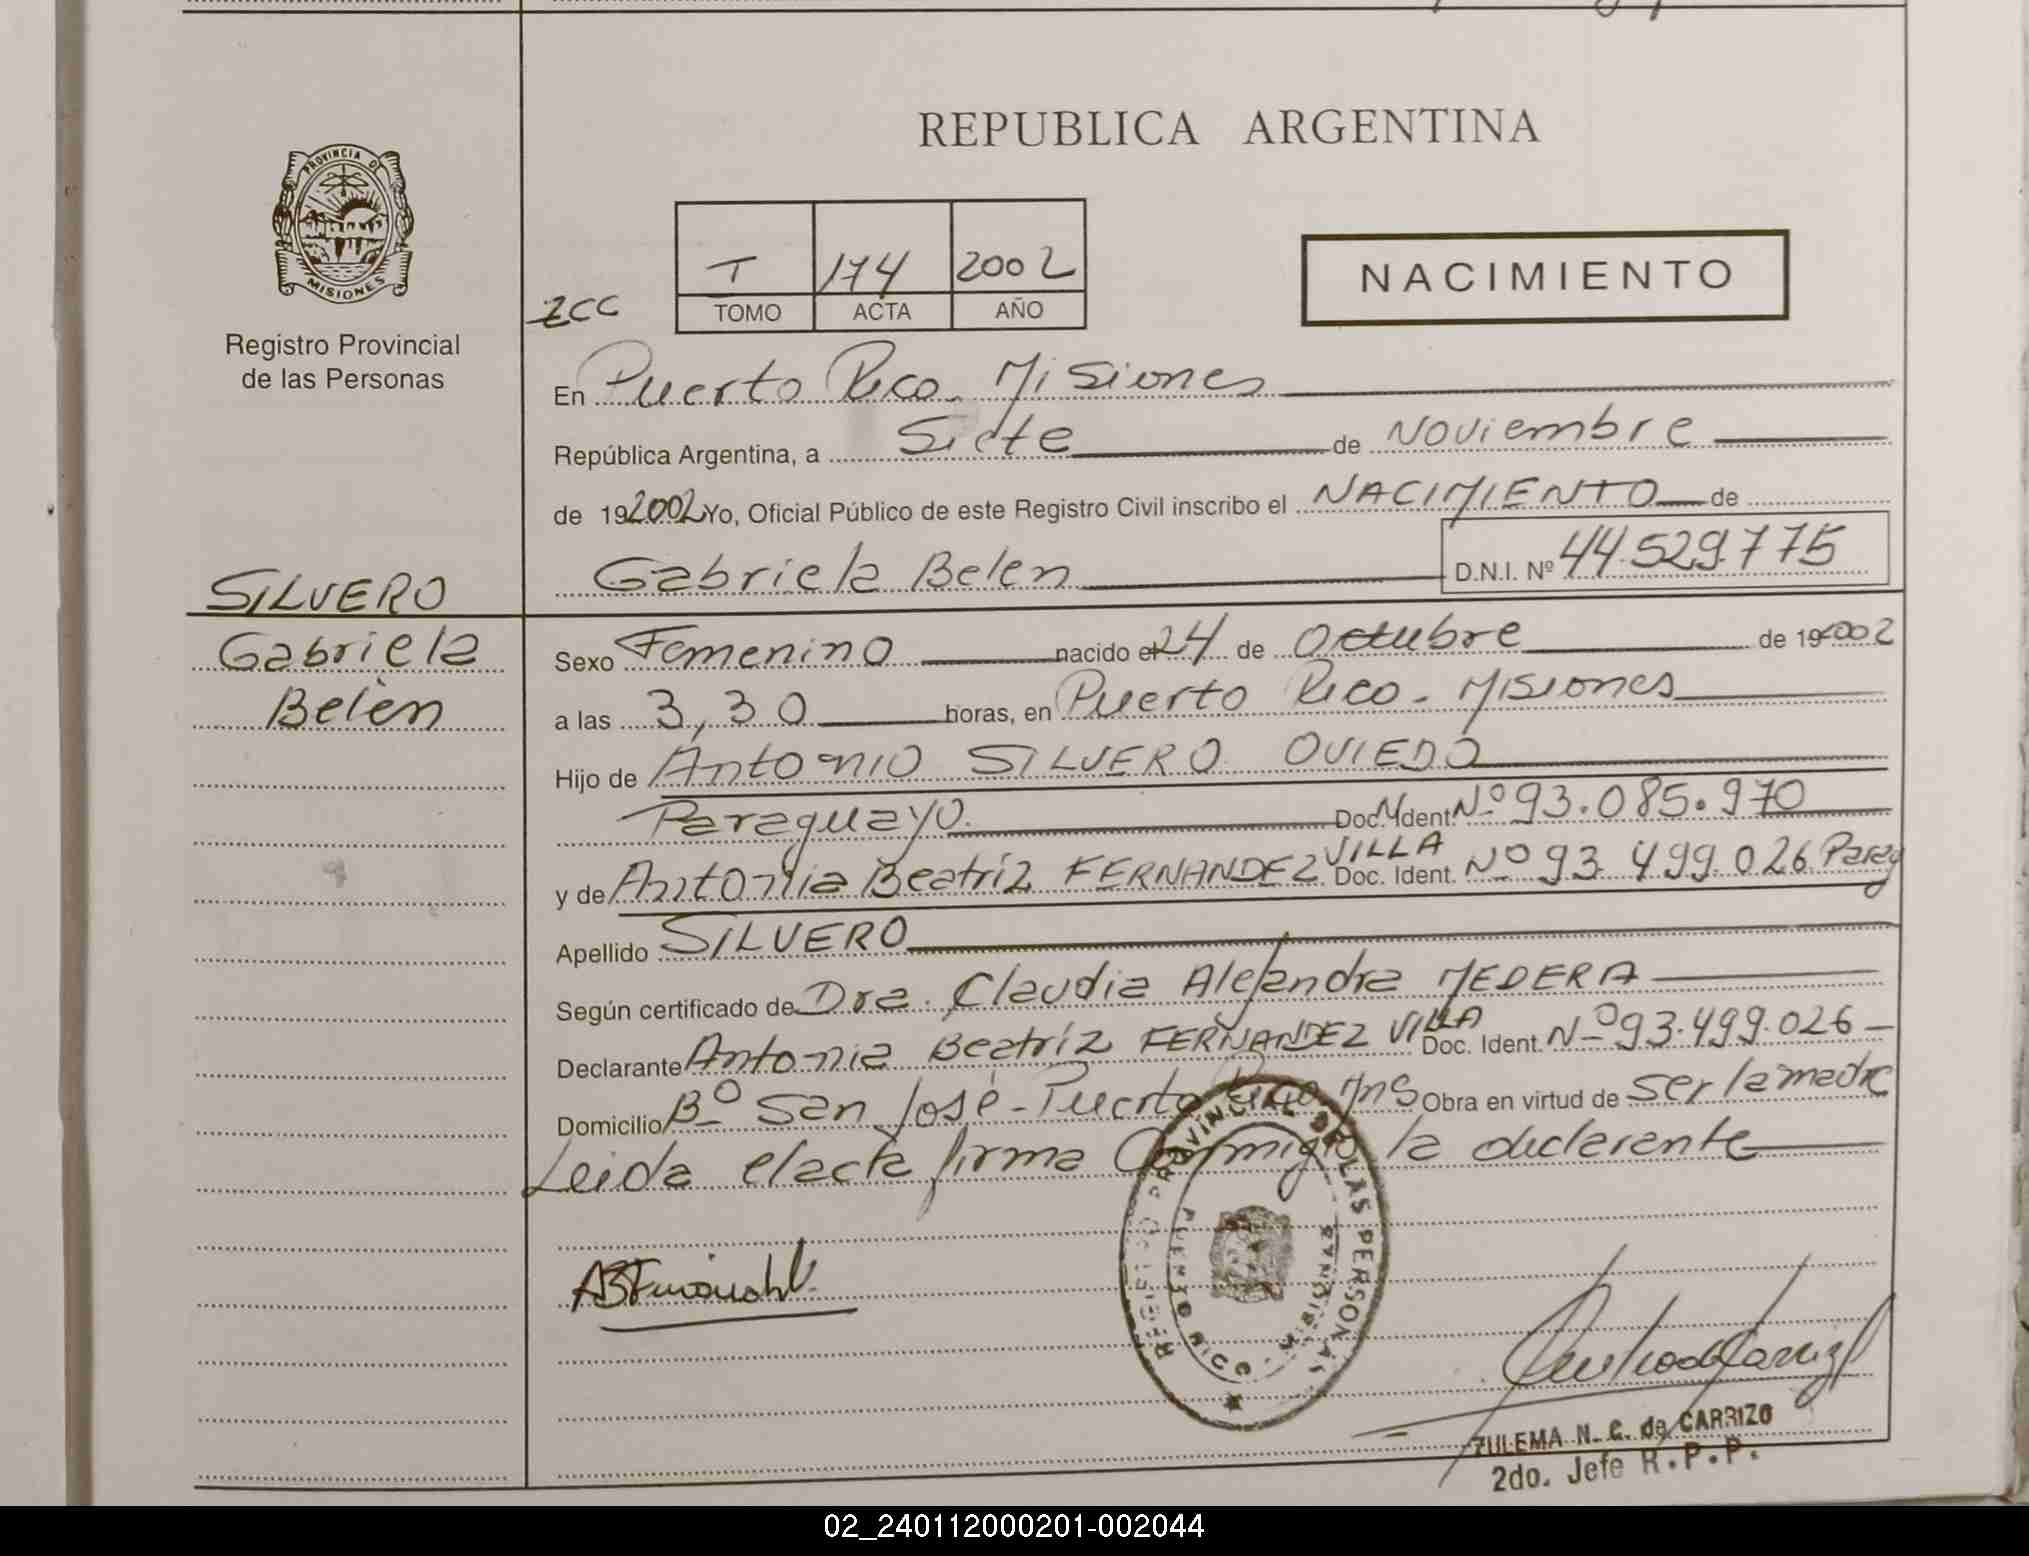 REPUBLICA ARGENTINA
PROVINCIA DE
MISIONES
Registro Provincial
de las Personas
T 174 2002
TOMO ACTA AÑO
NACIMIENTO
ZCC
En Puerto Rico. Misiones
República Argentina, a Siete de Noviembre
de 192002 Yo, Oficial Público de este Registro Civil inscribo el NACIMIENTO de
Gabriela Belen D.N.I. Nº 44.529.775
SILVERO
Gabriela
Belén
Sexo Femenino nacido el 24 de Octubre de 192002
a las 3,30 horas, en Puerto Rico - Misiones
Hijo de Antonio SILVERO OVIEDO
Paraguayo. Doc. Ident. Nº 93.085.970
y de Antonia Beatríz FERNANDEZ VILLA Doc. Ident. Nº 93.499.026 Parag
Apellido SILVERO
Según certificado de Dra. Claudia Alejandra MEDERA
Declarante Antonia Beatríz FERNANDEZ VILLA Doc. Ident. Nº 93.499.026
Domicilio Bº San José - Puerto Rico Mns Obra en virtud de ser la madre
Leida el acta firma Conmigo la declarante
REGISTRO PROVINCIAL DE LAS PERSONAS
PUERTO RICO - MISIONES
ZULEMA N. C. de CARRIZO
2do. Jefe R.P.P.
02_240112000201-002044